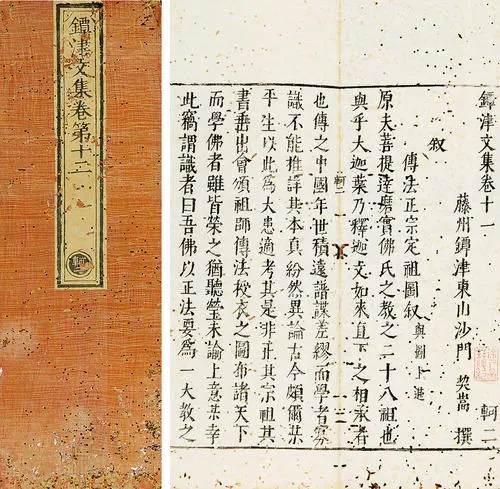 鐔津文集卷第十二
鐔津文集卷十一 軻一
藤州鐔津東山沙門 契嵩 撰
敘
傳法正宗定祖圖敘 與圖上進
原夫菩提達磨實佛氏之教之二十八祖也
與乎大迦葉乃釋迦文如來直下之相承者
也傳之中國年世積遠譜諜差繆而學者寡
識不能推詳其本真紛然異論古今頗爾某
平生以此為大患適考其是非正其宗祖其
書垂出會頒祖師傳法授衣之圖布諸天下
而學佛者雖皆榮之猶聽瑩未諭上意某幸
此竊謂識者曰吾佛以正法要為一大教之